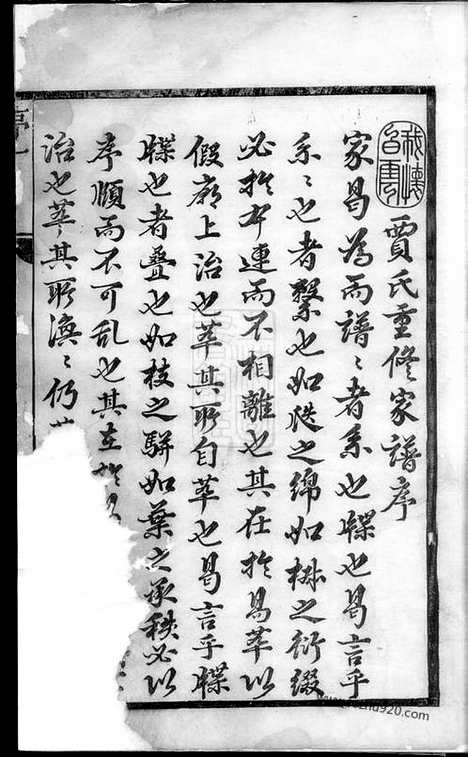 賈氏重修家譜序
家曷為而譜譜者系也牒也曷言乎
系系也者繫也如之綿如之衍綴
必於本連而不相離也其在於易萃以
假廟上治也萃其所自萃也曷言乎牒
牒也者疊也如枝之駢如葉之承秩必以
序順而不可乱也其在於
治也萃其所渙渙仍
序一